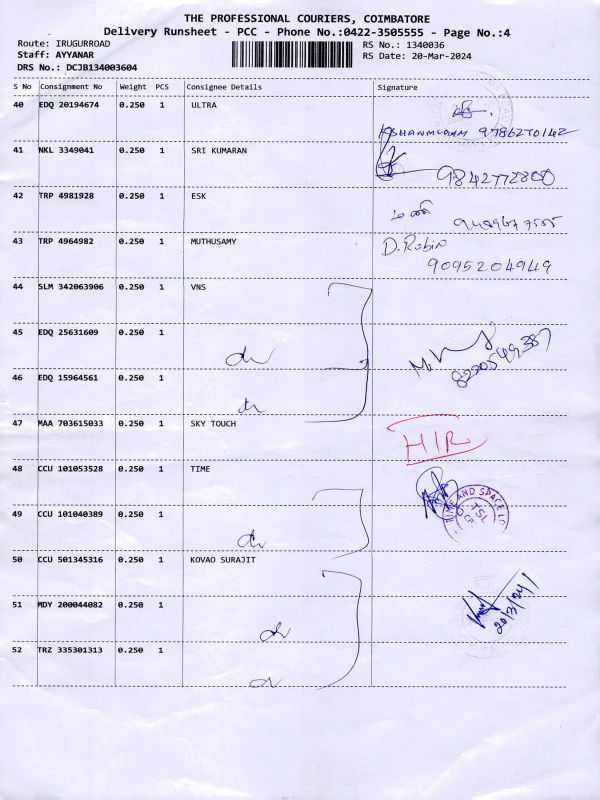 THE PROFESSIONAL COURIERS, COIMBATORE
Delivery Runsheet - PCC - Phone No.:0422-3505555 - Page No.:4
Route: IRUGURROAD
RS No.: 1340036
Staff: AYYANAR
RS Date: 20-Mar-2024
DRS No.: DCJB134003604
S No Consignment No Weight PCS Consignee Details Signature
40 EDQ 20194674 0.250 1 ULTRA
9786270142
41 NKL 3349041 0.250 1 SRI KUMARAN
9842772800
42 TRP 4981928 0.250 1 ESK
43 TRP 4964982 0.250 1 MUTHUSAMY D. Robin
9095204949
44 SLM 342063906 0.250 1 VNS
45 EDQ 25631609 0.250 1
46 EDQ 15964561 0.250 1
47 MAA 703615033 0.250 1 SKY TOUCH
HIR
48 CCU 101053528 0.250 1 TIME
AND SPACE
TSL
49 CCU 101040389 0.250 1
50 CCU 501345316 0.250 1 KOVAO SURAJIT
51 MDY 200044082 0.250 1
20/3/24
52 TRZ 335301313 0.250 1